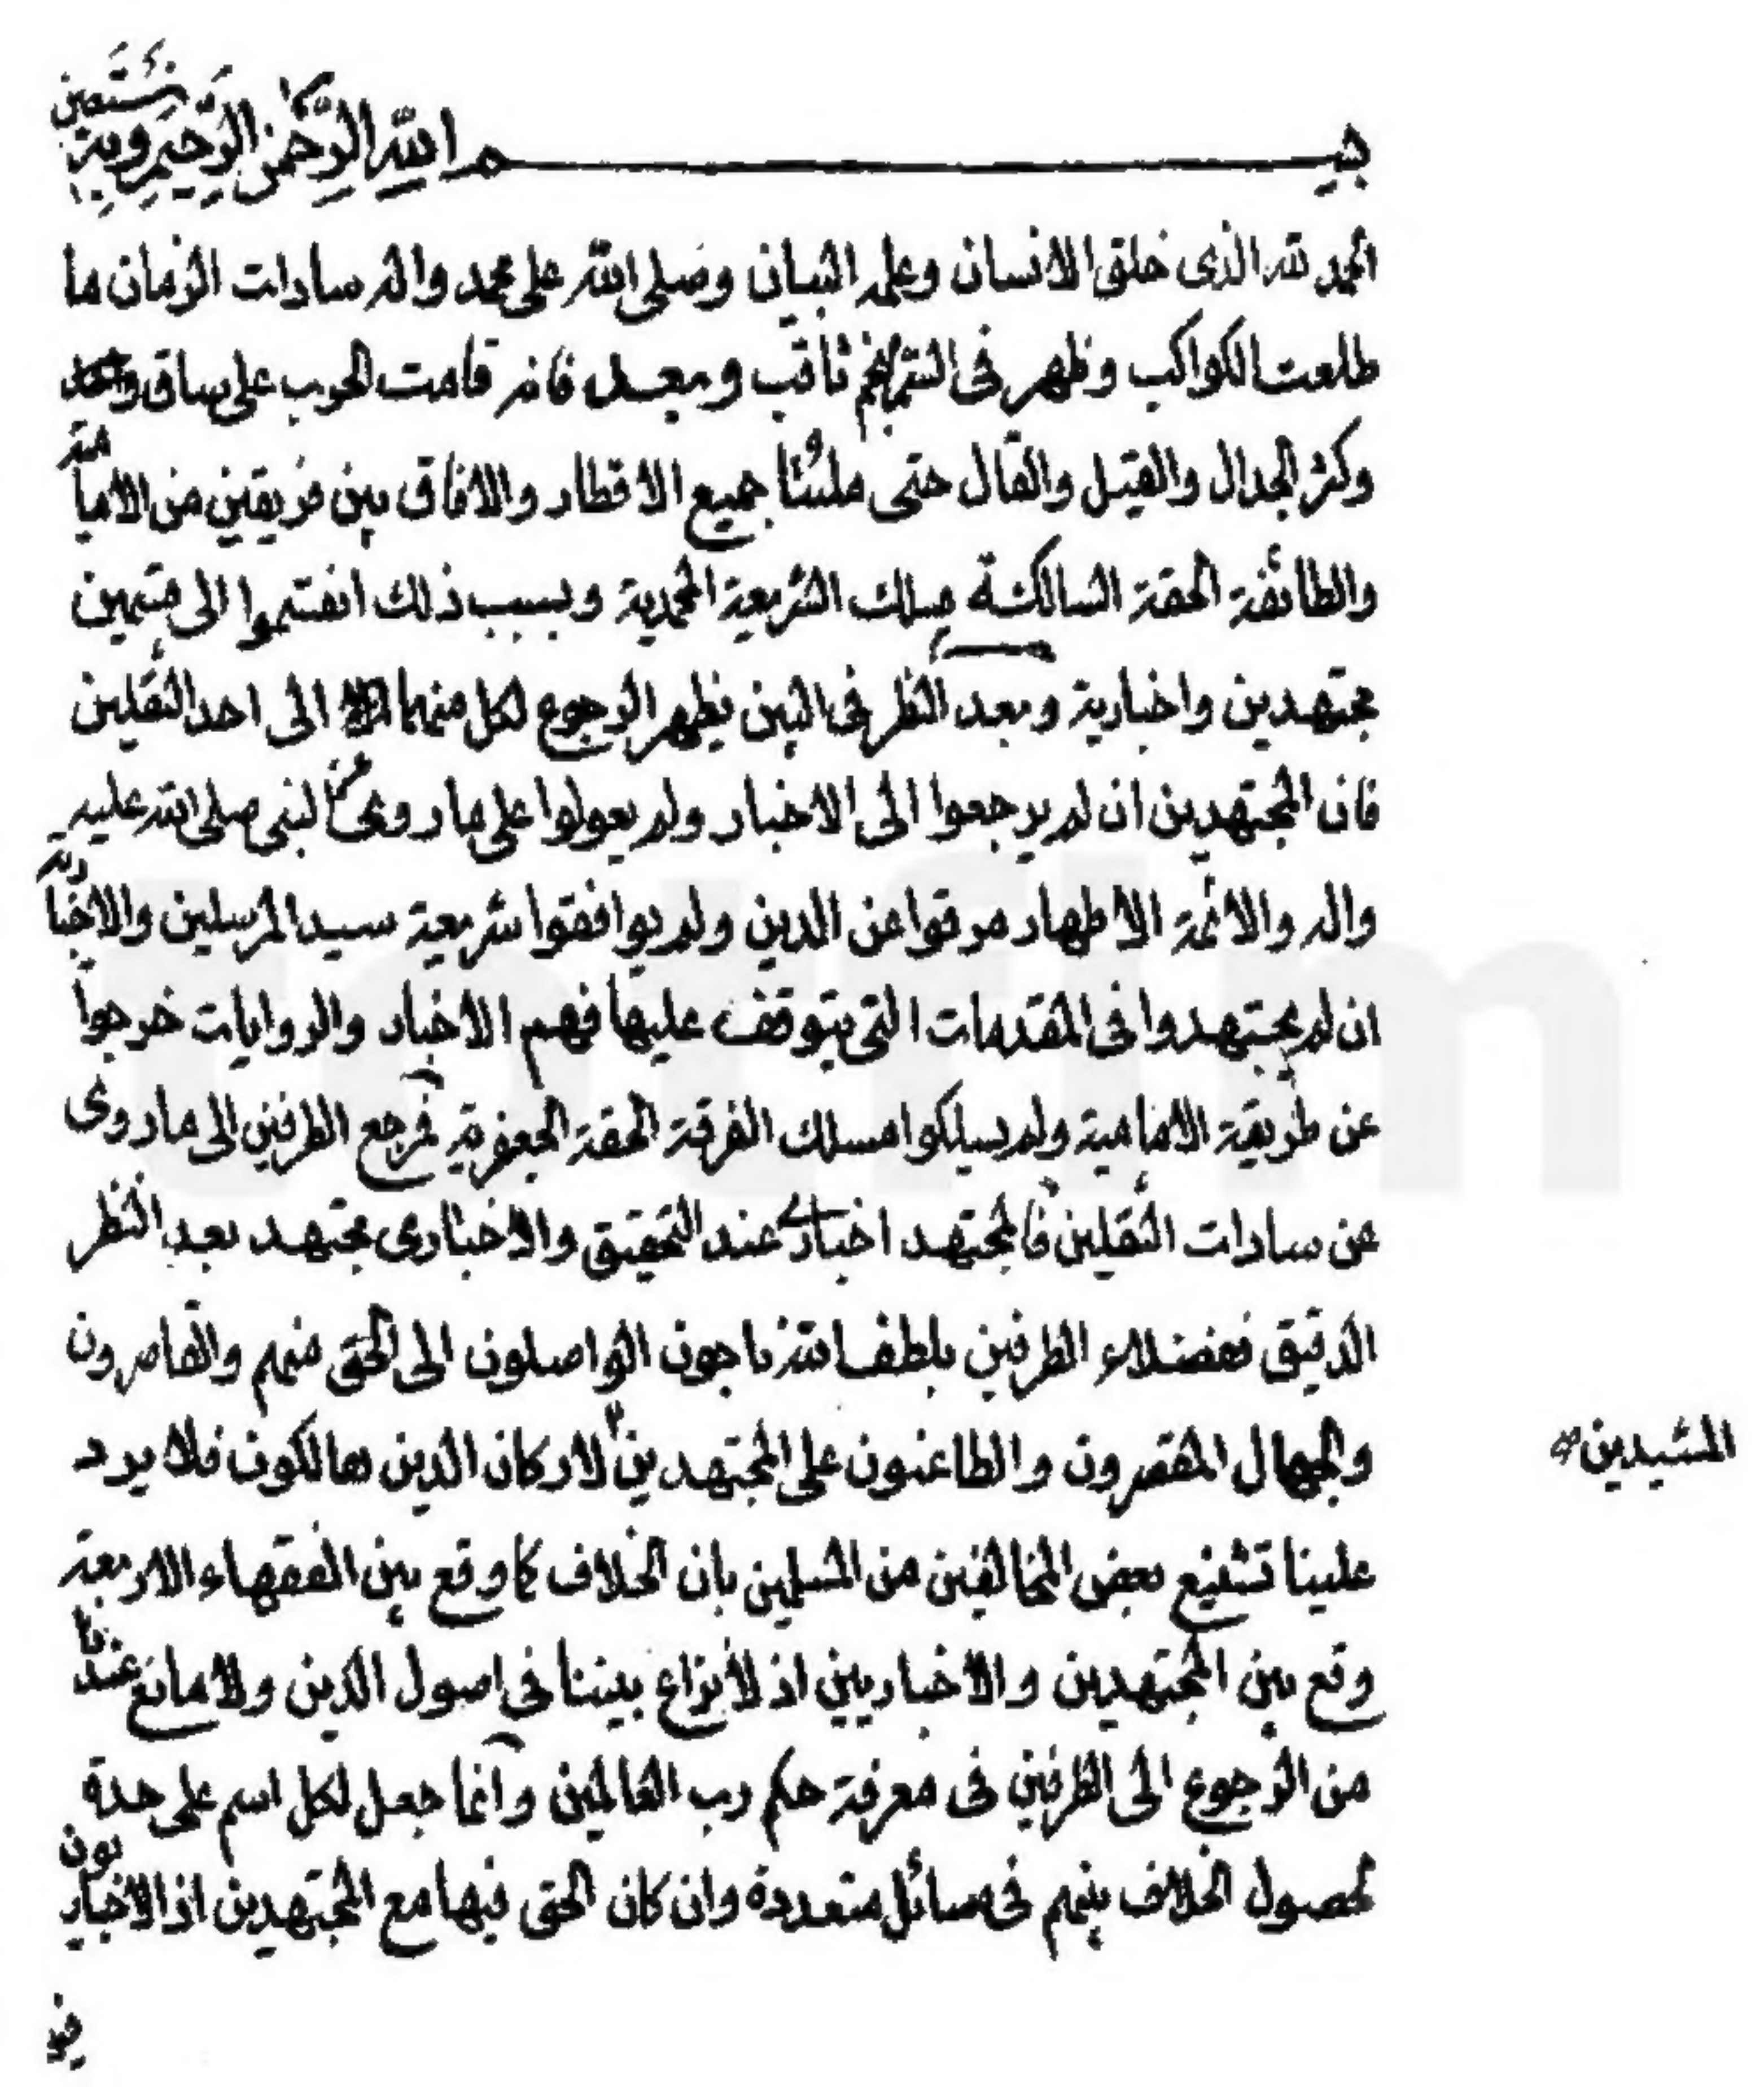 بسم الله الرحمن الرحيم وبه نستعين
الحمد لله الذى خلق الانسان وعلمه البيان وصلى الله على محمد واله سادات الزمان ما
طلعت الكواكب وظهر فى الشرع نجم ثاقب وبعد فانه قامت الحرب على ساق
وكثر الجدال والقيل والقال حتى ملئتا جميع الاقطار والافاق بين فريقين من الامامية
والطائفة الحقة السالكة مسلك الشريعة المحمدية وبسبب ذلك انقسموا الى قسمين
مجتهدين واخبارية وبعد النظر فى البين يظهر الرجوع لكل منهما الى احد الثقلين
فان المجتهدين ان لم يرجعوا الى الاخبار ولم يعولوا على ما روى عن النبى صلى الله عليه
واله والائمة الاطهار مرقوا عن الدين ولم يوافقوا شريعة سيد المرسلين والاخبارية
ان لم يجتهدوا فى المقدمات التى يتوقف عليها فهم الاخبار والروايات خرجوا
عن طريقة الامامية ولم يسلكوا مسلك الفرقة الحقة الجعفرية فمرجع الطرفين الى ما روى
عن سادات الثقلين فالمجتهد اخبارى عند التحقيق والاخبارى مجتهد بعد النظر
الدقيق ففضلاء الطرفين بلطف الله ناجون الواصلون الى الحق منهم والقاصرون
والجهال المقصرون والطاعنون على المجتهدين لاركان الدين هالكون فلا يرد
المشيدين
علينا تشنيع بعض المخالفين من المسلمين بان الخلاف كما وقع بين الفقهاء الاربعة
وقع بين المجتهدين والاخباريين اذ لا نزاع بيننا فى اصول الدين ولا مانع عندنا
من الرجوع الى الطرفين فى معرفة حكم رب العالمين وانما جعل لكل اسم على حدة
لحصول الخلاف بينهم فى مسائل متعددة وان كان الحق فيها مع المجتهدين اذ الاخباريون